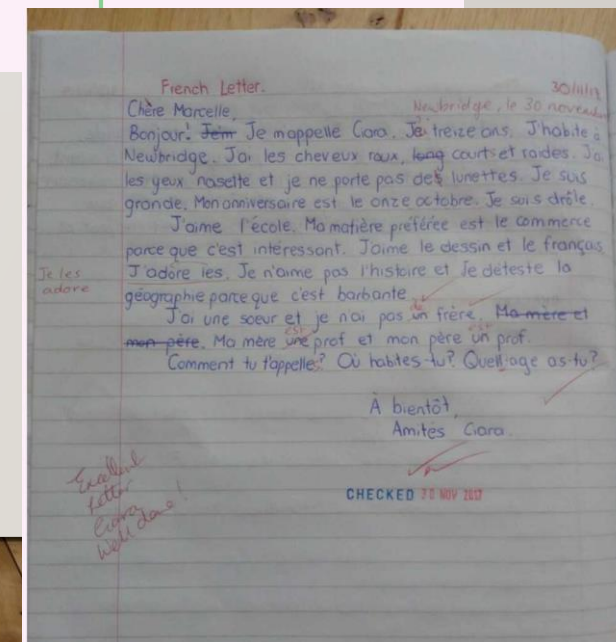 French Letter. 30/11/17
Newbridge, le 30 novembre
Chère Marcelle,
Bonjour! Je m'appelle Ciara. J'ai treize ans. J'habite à
Newbridge. J'ai les cheveux roux, long courts et raides. J'ai
les yeux noisette et je ne porte pas de lunettes. Je suis
grande. Mon anniversaire est le onze octobre. Je suis drôle.
J'aime l'école. Ma matière préférée est le commerce
parce que c'est intéressant. J'aime le dessin et le français
Je les J'adore les. Je n'aime pas l'histoire et Je déteste la
adore géographie parce que c'est barbante
J'ai une soeur et je n'ai pas un de frère. Ma mère et
mon père. Ma mère une est prof et mon père un est prof.
Comment tu t'appelles? Où habites-tu? Quel age as-tu?
À bientôt,
Amitès Ciara.
Excellent
Letter
Ciara
Well done!
CHECKED 30 NOV 2017